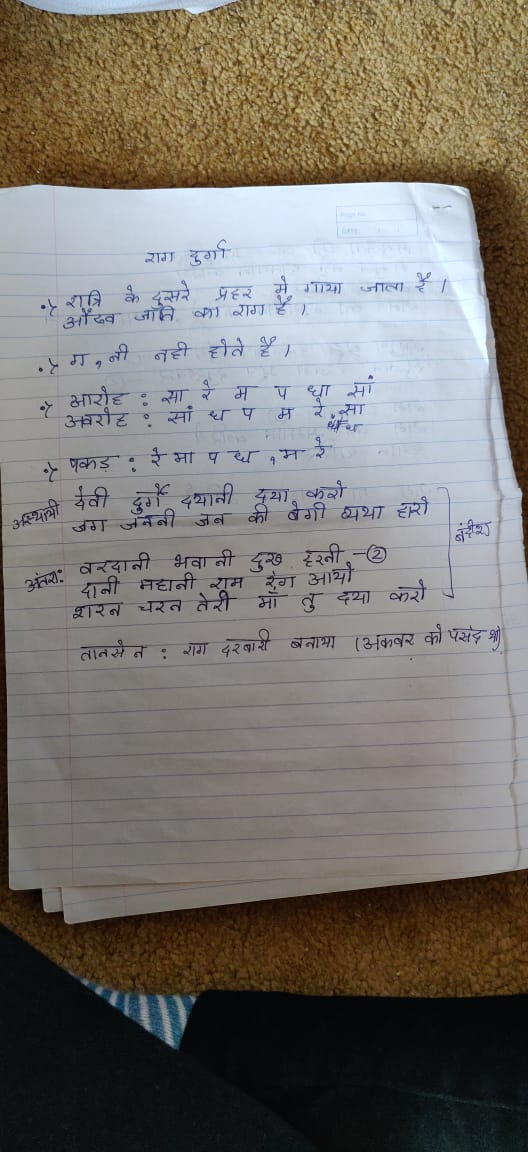 राग दुर्गा
रात्रि के दुसरे प्रहर मे गाया जाता है ।
औढव जाति का राग है ।
ग , नी नही होते है ।
आरोह : सा रे म प धा सां
अवरोह : सां ध प म रे सा
पकड़ : रे मा प ध , म रे
अस्थायी देवी दुर्गे दयानी दया करो
जग जननी जन की बेगी व्यथा हारो
बंदीश
अंतरा: वरदानी भवानी दुख हरनी - 2
दानी महानी राम रंग आयो
शरन चरन तेरी माँ तु दया करो
तानसेन : राग दरबारी बनाया (अकबर को पसंद था)